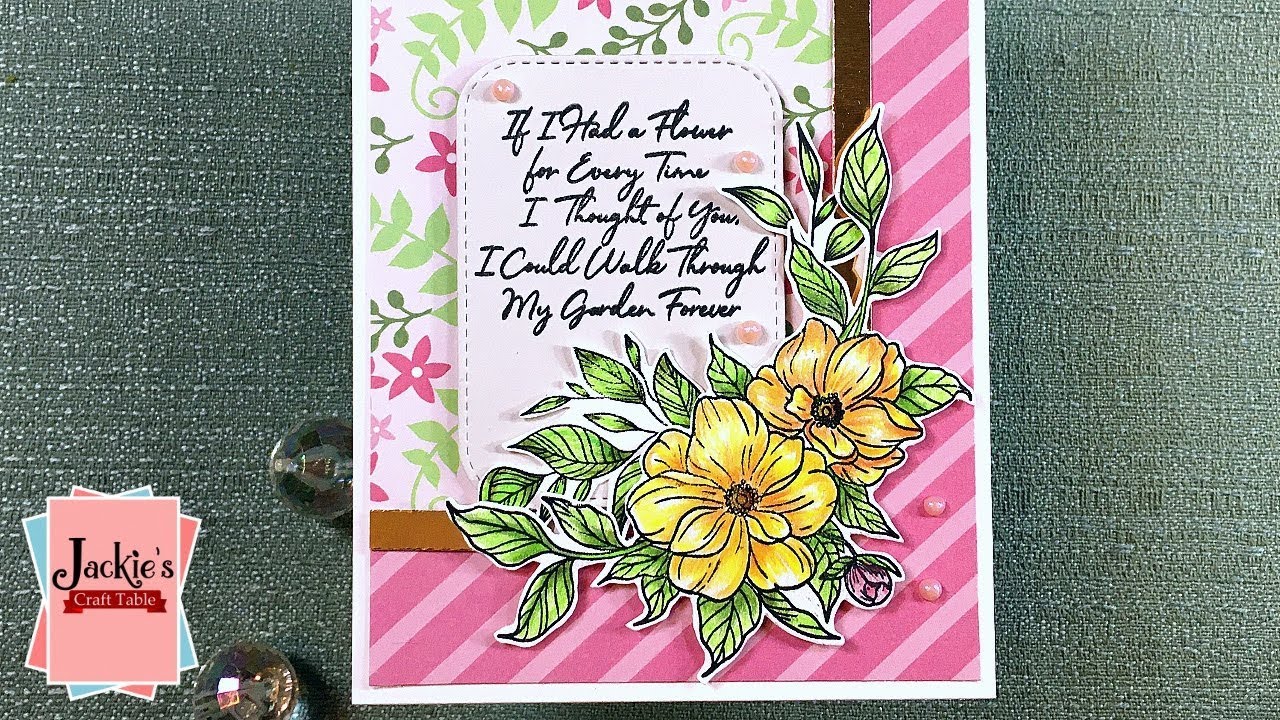 If I Had a Flower
for Every Time
I Thought of You,
I Could Walk Through
My Garden Forever
Jackie's
Craft Table